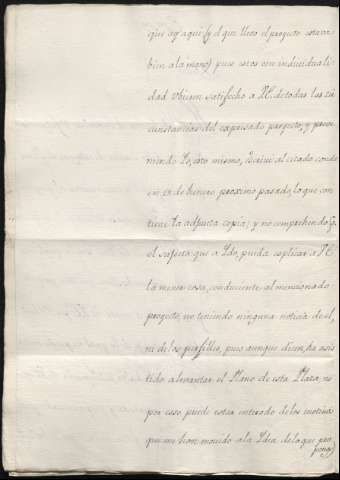 que ay aqui (y el que lleva el proyecto estava
bien a la mano) pues estos con individuali
dad ubieran satisfecho a V.E. de todas las cir
cunstancias del expresado proyecto, y previ
niendo Yo, esto mismo, escrivi al citado conde
en 12 de henero proximo pasado, lo que con
tiene la adjunta copia; y no comprehendo Yo,
el sujeto que a Ydo, pueda esplicar a V.E.
la menor cosa, conducente al mencionado
proyecto, no teniendo ninguna noticia de el,
ni de los perfiles, pues aunque dicen, ha asis
tido a levantar el Plano de esta Plaza, no
por eso, puede estar enterado de los motivos
que me han movido a la Ydea de lo que pro
pongo